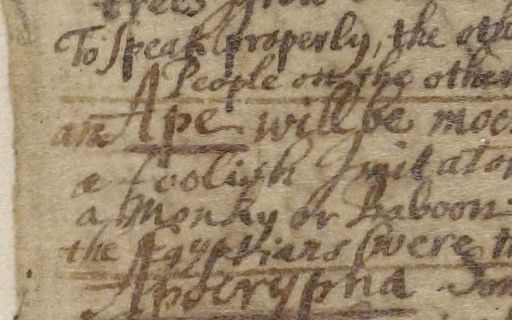 trees grow
To speak properly, the oth
People on the other
an Ape will be moc
a foolish Imitator
a Monky or Baboon
the Ægyptians (were
Apocrypha